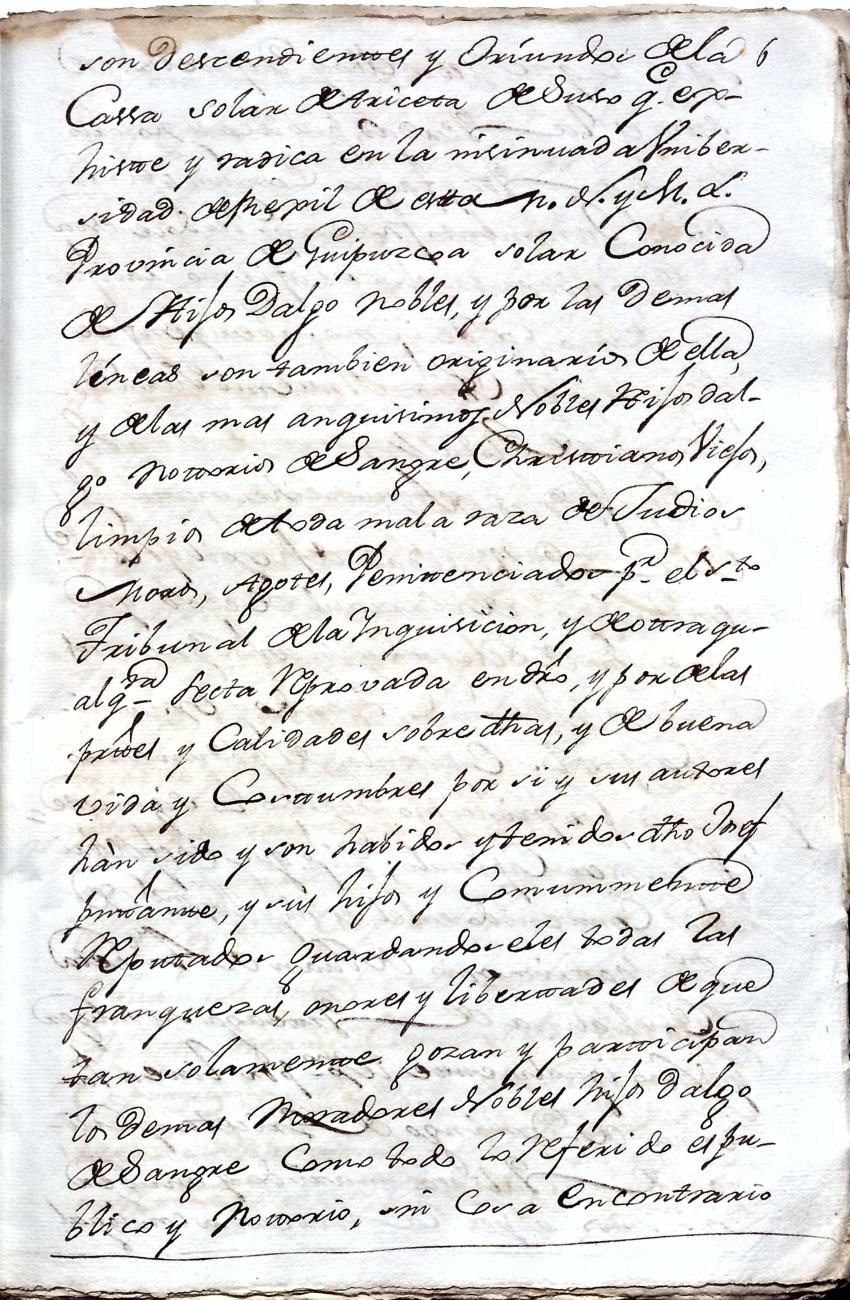 son descendientes y Oriundos de la 6
Cassa solar de Ariceta de Suso q.e ex-
histe y radica en la insinuada Vniber-
sidad de Rexil de esta N. N. y M. L.
Provincia de Guipuzcoa solar Conocida
de Hijos Dalgo nobles, y por las demas
líneas son tambien originarios de ella,
y de las mas antiquisimos Nobles Hijos dal-
go notorios de Sangre, Christianos Viejos,
limpios de toda mala raza de Judios
Moros, Agotes, Penitenciados p.r el s.to
Tribunal de la Inquisicion, y de otra qu-
alq.ra Secta Reprovada en dro, y por de las
prtes y Calidades sobre dhas, y de buena
vida y Costumbres por si y sus autores
hàn sido y son habidos y tenidos dho Josef
, y sus hijos y Comummente
Reputados guardandoseles todas las
franquezas, onores y libertades de que
tan solamente gozan y participan
los demas Moradores Nobles hijos dalgo
de Sangre Como todo lo Referido es pu-
blico y Notorio, sin Cosa en contrario